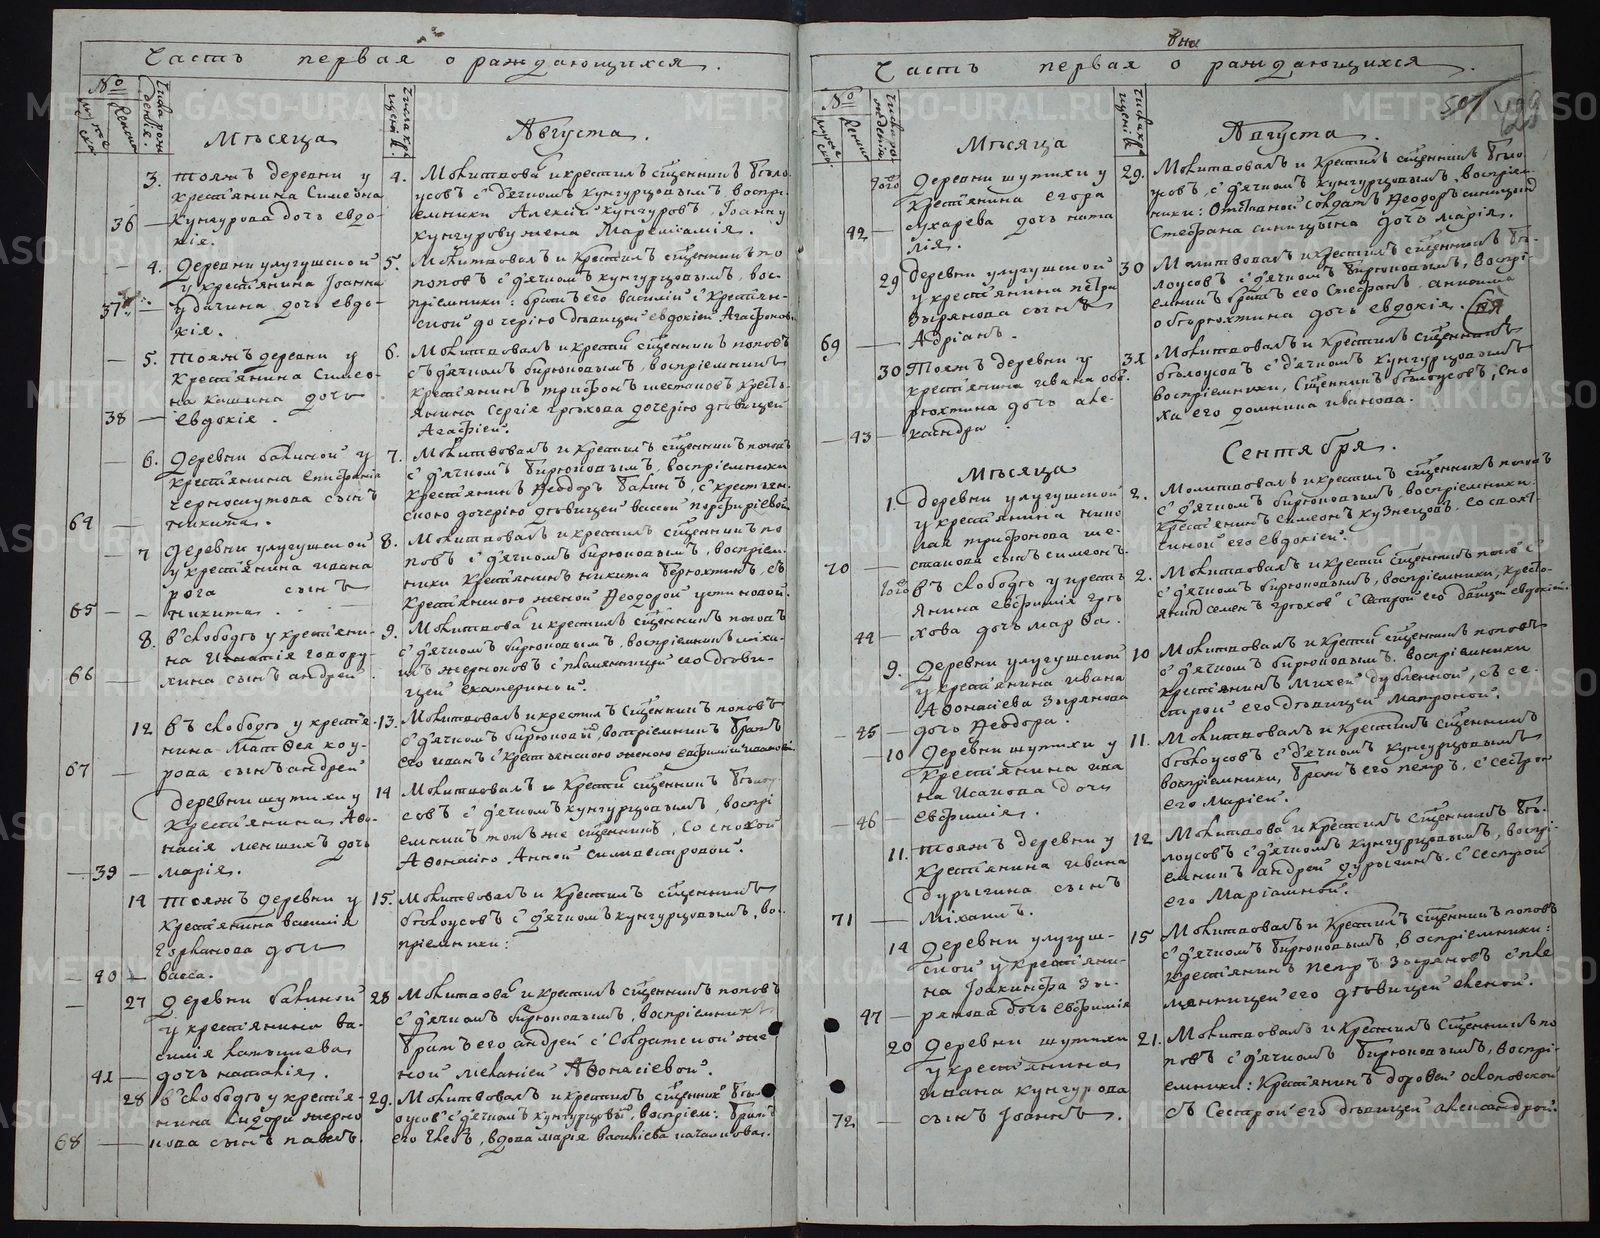 Часть первая о раждающихся.
№
Мѣсяца
Августа.
3. тояжъ деревни у
крестьянина Симеона
36 — Кунгурова дочь евдо-
кія.
4. Молитвовалъ и крестилъ сщенникъ Бѣло
усовъ с дьячкомъ кунгурцовымъ, воспрі-
емники Алексій кунгуровъ, Іоанну
кунгурову жена
4. Деревни улугушской
у крестьянина Іоанна
37 — удачина дочь евдо-
кія.
5. Молитвовалъ и крестилъ сщенникъ по
повъ с дьячкомъ кунгурцовымъ, вос-
пріемники: братъ его василій с крестьян-
ской дочерію дѣвицей евдокіей Агафонов
5. тояжъ деревни у
крестьянина Симео-
на кашина дочь
38 — евдокія.
6. Молитвовалъ и крестилъ сщенникъ поповъ
съ дьячкомъ бирюковымъ, воспріемникъ
крестьянинъ трифонъ шестаковъ, кресть-
янина Сергія грѣхова дочерію дѣвицей
Агафіей.
6. Деревни бакиной у
крестьянина Епифанія
черноскутова сынъ
64 — никита.
7. Молитвовалъ и крестилъ сщенникъ поповъ
с дьячкомъ бирюковымъ, воспріемники
крестьянинъ Ѳеодоръ бакинъ, с крестьян-
скою дочерію дѣвицей вассой порфиріевой
7 деревни улугушской
у крестьянина ивана
рога сынъ
65 — никита.
8. Молитвовалъ и крестилъ сщенникъ по
повъ с дьячкомъ бирюковымъ, воспріем-
ники крестьянинъ никита берюхтинъ, съ
крестьянкою женой Ѳеодорой устиновой.
8. в слободѣ у крестьяни-
на Игнатія говору-
66 — хина сынъ андрей
9. Молитвовалъ и крестилъ сщенникъ поповъ
с дьячкомъ бирюковымъ, воспріемникъ миха-
илъ жерноковъ с племянницей его дѣви-
цей екатериной.
12 въ слободѣ у крестья-
нина Матѳея коу-
67 — рова сынъ андрей
13. Молитвовалъ и крестилъ сщенникъ поповъ
с дьячкомъ бирюковымъ, воспріемникъ братъ
его иванъ с крестьянскою женою евфиміей ивановой
деревни шутихи у
крестьянина Аѳо-
насія меншихъ дочь
39 — марія.
14 Молитвовалъ и крестилъ сщенникъ бѣлоу
совъ с дьячкомъ кунгурцовымъ, воспрі
емникъ тотъ же сщенникъ, со снохой
Аѳонасіею Анной силивестровой.
14 тояжъ деревни у
крестьянина василія
Горланова дочь
40 — васса.
15. Молитвовалъ и крестилъ сщенникъ
бѣлоусовъ с дьячкомъ кунгурцовымъ, вос-
пріемники:
27 Деревни бакиной
у крестьянина ва-
силія латышева
41 — дочь наталія.
28 Молитвовалъ и крестилъ сщенникъ поповъ
с дьячкомъ бирюковымъ, воспріемники
братъ его андрей с Солдатской же-
ной меланіей Аѳонасіевой.
28 в слободѣ у крестья-
нина Сидора жерно
68 — кова сынъ павелъ.
29. Молитвовалъ и крестилъ сщенникъ бѣло
усовъ с дьячкомъ кунгурцовымъ, воспріем: братъ
его глебъ, вдова марія васильева
Часть первая о раждающихся.
№
Мѣсяца
Августа.
Деревни шутихи у
крестьянина егора
42 — сухарева дочь ната
лія.
29. Молитвовалъ и крестилъ сщенникъ бѣло
усовъ с дьячкомъ кунгурцовымъ, воспріем-
ники: Отставной солдатъ Ѳеодоръ синицынъ
Стефана синицына дочь марія.
29 деревни улугушской
у крестьянина петра
Зырянова сынъ
69 — Адріанъ.
30 Молитвовалъ и крестилъ сщенникъ бѣ-
лоусовъ с дьячкомъ бирюковымъ, воспрі-
емникъ братъ его Стефанъ,
обѣрюхтина дочь евдокія.
30 тояжъ деревни у
крестьянина ивана обѣ-
рюхтина дочь але-
43 — ксандра.
31 Молитвовалъ и крестилъ сщенникъ
бѣлоусовъ с дьячкомъ кунгурцовымъ
воспріемники, Сщенникъ бѣлоусовъ, сно
ха его домника иванова.
Мѣсяца
Сентября.
1. деревни улугушской
у крестьянина нико
лая трифонова ше-
70 — стакова сынъ симеонъ.
2. Молитвовалъ и крестилъ сщенникъ поповъ
с дьячкомъ бирюковымъ, воспріемники:
крестьянинъ симеонъ кузнецовъ, со своя-
ченой его евдокіей.
въ слободѣ у кресть
янина евфимія грѣ
44 — хова дочь марѳа.
2. Молитвовалъ и крестилъ сщенникъ поповъ с
с дьячкомъ бирюковымъ, воспріемники, кресть-
янинъ семенъ грѣховъ с сестрой его дѣвицей евдокіей.
9. деревни улугушской
у крестьянина ивана
Аѳонасіева Зырянова
45 — дочь Ѳеодора.
10 Молитвовалъ и крестилъ сщенникъ поповъ
с дьячкомъ бирюковымъ, воспріемники
крестьянинъ михей дубленной, съ се-
строй его дѣвицей матроной.
10 Деревни шутихи у
крестьянина ива
на Исакова дочь
46 — евфимія.
11. Молитвовалъ и крестилъ сщенникъ
бѣлоусовъ с дьячкомъ кунгурцовымъ
воспріемники, братъ его петръ, с сестрой
его Маріей.
11. тояжъ деревни у
крестьянина ивана
дурыгина сынъ
71 — михаилъ.
12 Молитвовалъ и крестилъ сщенникъ бѣ-
лоусовъ с дьячкомъ кунгурцовымъ, воспрі-
емникъ андрей дурыгинъ, с сестрой
его Маріамной.
14 деревни улугуш-
ской у крестьяни-
на Іоакинфа Зы-
47 — рянова дочь евфимія
15 Молитвовалъ и крестилъ сщенникъ поповъ
с дьячкомъ бирюковымъ, воспріемники:
крестьянинъ петръ Зыряновъ с пле
мянницей его дѣвицей еленой.
20 Деревни шутихи
у крестьянина
ивана кунгурова
72 — сынъ Іоаннъ.
21. Молитвовалъ и крестилъ сщенникъ по
повъ с дьячкомъ бирюковымъ, воспрі-
емники: крестьянинъ дорофей осколковской
съ Сестрой его дѣвицей александрой.
METRIKI.GASO-URAL.RU